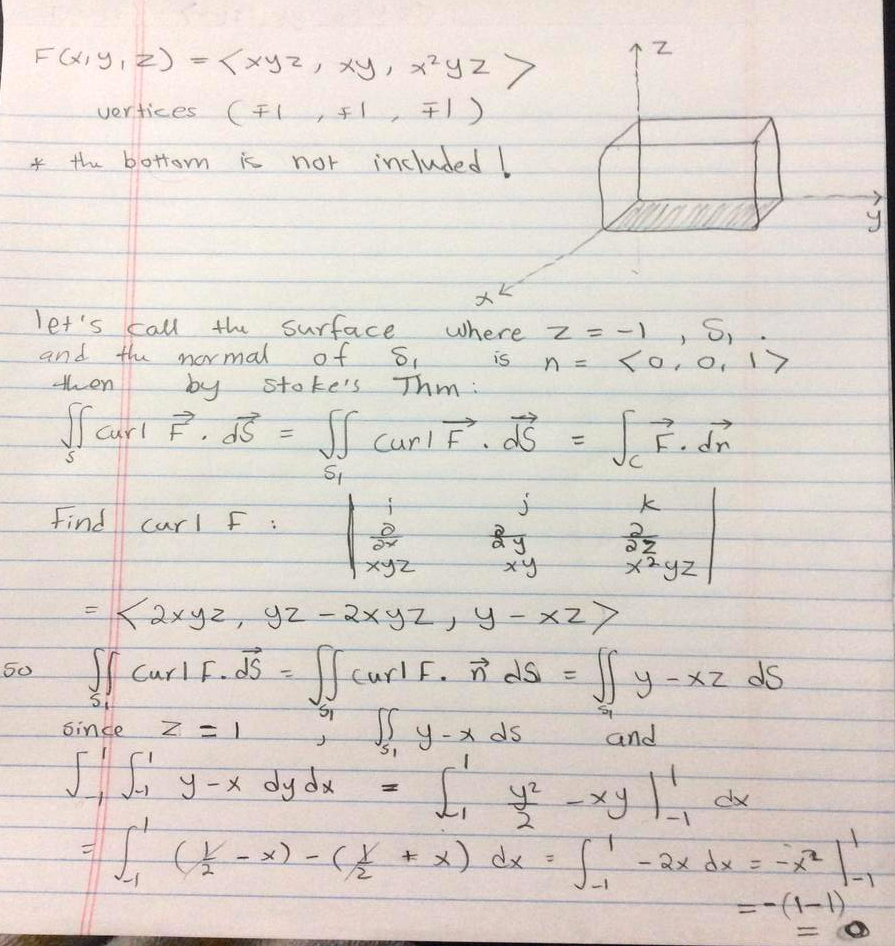 F(x,y,z) = <xyz, xy, x²yz>
z
vertices (∓1, ∓1, ∓1)
* the bottom is not included!
y
x
let's call the surface where z = -1, S₁.
and the normal of S₁ is n = <0, 0, 1>
then by stoke's Thm:
∬_S curl F⃗ . dS⃗ = ∬_S₁ curl F⃗ . dS⃗ = ∫_C F⃗ . dr⃗
Find curl F : | i j k
∂/∂x ∂/∂y ∂/∂z
xyz xy x²yz |
= <2xyz, yz - 2xyz, y - xz>
so ∬_S₁ curl F. dS⃗ = ∬_S₁ curl F. n⃗ dS = ∬_S₁ y - xz dS
since z = 1 , ∬_S₁ y - x ds and
∫_-1^1 ∫_-1^1 y - x dy dx = ∫_-1^1 y²/2 - xy |_-1^1 dx
= ∫_-1^1 (1/2 - x) - (1/2 + x) dx = ∫_-1^1 -2x dx = -x² |_-1^1
= -(1-1)
= 0